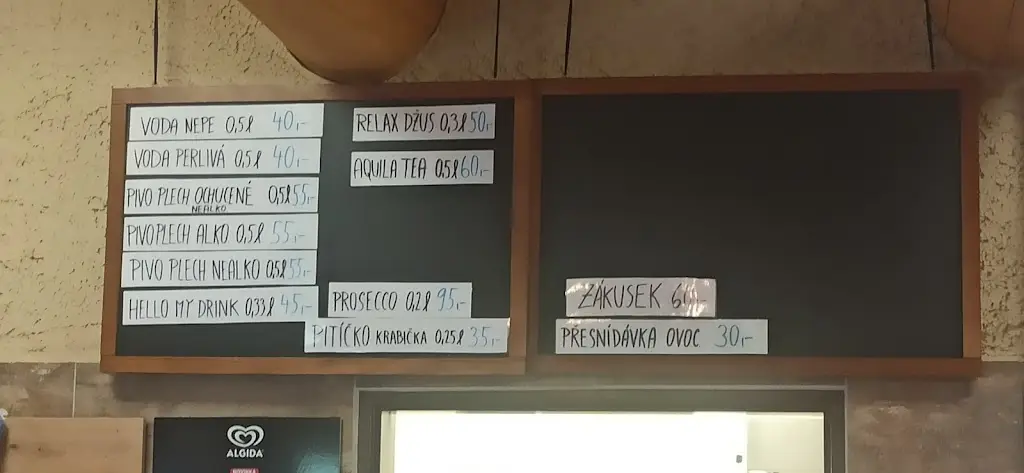 VODA NEPE 0,5ℓ 40,-
VODA PERLIVÁ 0,5ℓ 40,-
PIVO PLECH OCHUCENÉ 0,5ℓ 55,-
NEALKO
PIVO PLECH ALKO 0,5ℓ 55,-
PIVO PLECH NEALKO 0,5ℓ 55,-
HELLO MY DRINK 0,33ℓ 45,-
RELAX DŽUS 0,3ℓ 50,-
AQUILA TEA 0,5ℓ 60,-
PROSECCO 0,2ℓ 95,-
PITÍČKO KRABIČKA 0,25ℓ 35,-
ZÁKUSEK 60,-
PŘESNÍDÁVKA OVOC 30,-
ALGIDA